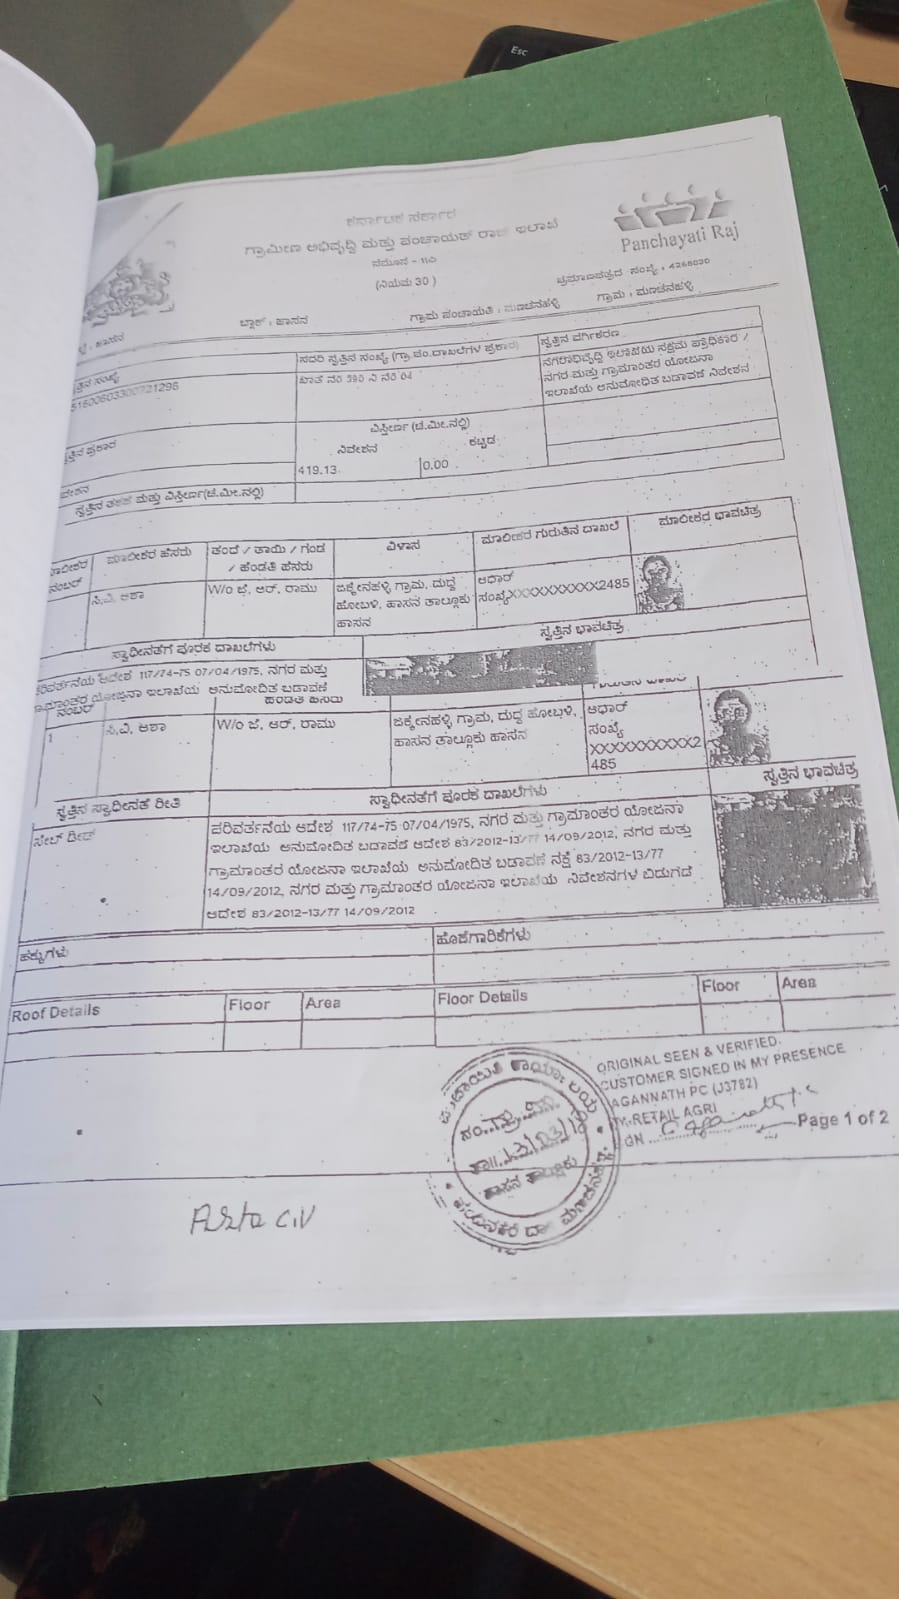 Esc
ಕರ್ನಾಟಕ ಸರ್ಕಾರ
ಗ್ರಾಮೀಣ ಅಭಿವೃದ್ಧಿ ಮತ್ತು ಪಂಚಾಯತ್ ರಾಜ್ ಇಲಾಖೆ
Panchayati Raj
ನಮೂನೆ - 11ಎ
(ನಿಯಮ 30 )
ಪ್ರಮಾಣಪತ್ರದ ಸಂಖ್ಯೆ : 4268030
ಬ್ಲಾಕ್ : ಹಾಸನ
ಗ್ರಾಮ ಪಂಚಾಯತಿ : ಮಣಚನಹಳ್ಳಿ
ಗ್ರಾಮ : ಮಣಚನಹಳ್ಳಿ
ಸದರಿ ಸ್ವತ್ತಿನ ಸಂಖ್ಯೆ (ಗ್ರಾ ಪಂ.ದಾಖಲೆಗಳ ಪ್ರಕಾರ)
ಸ್ವತ್ತಿನ ವರ್ಗಿಕರಣ
51600603300721296
ನಗರಾಭಿವೃದ್ಧಿ ಇಲಾಖೆಯ ಸಕ್ಷಮ ಪ್ರಾಧಿಕಾರ /
ನಗರ ಮತ್ತು ಗ್ರಾಮಾಂತರ ಯೋಜನಾ
ಇಲಾಖೆಯ ಅನುಮೋದಿತ ಬಡಾವಣೆ ನಿವೇಶನ
ವಿಸ್ತೀರ್ಣ (ಚ.ಮೀ.ನಲ್ಲಿ)
ನಿವೇಶನ ಕಟ್ಟಡ
419.13 0.00
ಮತ್ತು ವಿಸ್ತೀರ್ಣ(ಚ.ಮೀ.ನಲ್ಲಿ)
ನಂಬರ್
ಮಾಲೀಕರ ಹೆಸರು
ತಂದೆ / ತಾಯಿ / ಗಂಡ
/ ಹೆಂಡತಿ ಹೆಸರು
ವಿಳಾಸ
ಮಾಲೀಕರ ಗುರುತಿನ ದಾಖಲೆ
ಮಾಲೀಕರ ಭಾವಚಿತ್ರ
ಸಿ.ವಿ. ಆಶಾ
W/o ಜೆ. ಆರ್. ರಾಮು
ಜಕ್ಕೇನಹಳ್ಳಿ ಗ್ರಾಮ, ದುದ್ದ
ಹೋಬಳಿ, ಹಾಸನ ತಾಲ್ಲೂಕು
ಹಾಸನ
ಆಧಾರ್
ಸಂಖ್ಯೆXXXXXXXXXX2485
ಸ್ವಾಧೀನತೆಗೆ ಪೂರಕ ದಾಖಲೆಗಳು
ಸ್ವತ್ತಿನ ಭಾವಚಿತ್ರ
ಪರಿವರ್ತನೆಯ ಆದೇಶ 117/74-75 07/04/1975, ನಗರ ಮತ್ತು
ಯೋಜನಾ ಇಲಾಖೆಯ ಅನುಮೋದಿತ ಬಡಾವಣೆ
1
ಸಿ.ವಿ. ಆಶಾ
W/o ಜೆ. ಆರ್. ರಾಮು
ಜಕ್ಕೇನಹಳ್ಳಿ ಗ್ರಾಮ, ದುದ್ದ ಹೋಬಳಿ,
ಹಾಸನ ತಾಲ್ಲೂಕು ಹಾಸನ
ಆಧಾರ್
ಸಂಖ್ಯೆ
XXXXXXXXXX2
485
ಸ್ವತ್ತಿನ ಸ್ವಾಧೀನತೆ ರೀತಿ
ಸ್ವಾಧೀನತೆಗೆ ಪೂರಕ ದಾಖಲೆಗಳು
ಸ್ವತ್ತಿನ ಭಾವಚಿತ್ರ
ಸೇಲ್ ಡೀಡ್
ಪರಿವರ್ತನೆಯ ಆದೇಶ 117/74-75 07/04/1975, ನಗರ ಮತ್ತು ಗ್ರಾಮಾಂತರ ಯೋಜನಾ
ಇಲಾಖೆಯ ಅನುಮೋದಿತ ಬಡಾವಣೆ ಆದೇಶ 83/2012-13/77 14/09/2012, ನಗರ ಮತ್ತು
ಗ್ರಾಮಾಂತರ ಯೋಜನಾ ಇಲಾಖೆಯ ಅನುಮೋದಿತ ಬಡಾವಣೆ ನಕ್ಷೆ 83/2012-13/77
14/09/2012, ನಗರ ಮತ್ತು ಗ್ರಾಮಾಂತರ ಯೋಜನಾ ಇಲಾಖೆಯ ನಿವೇಶನಗಳ ಬಿಡುಗಡೆ
ಆದೇಶ 83/2012-13/77 14/09/2012
ಹಕ್ಕುಗಳು
ಹೊಣೆಗಾರಿಕೆಗಳು
Roof Details Floor Area Floor Details Floor Area
ORIGINAL SEEN & VERIFIED.
CUSTOMER SIGNED IN MY PRESENCE
AGANNATH PC (J3782)
RETAIL AGRI
Page 1 of 2
ಹಾಸನ ತಾಲ್ಲೂಕು